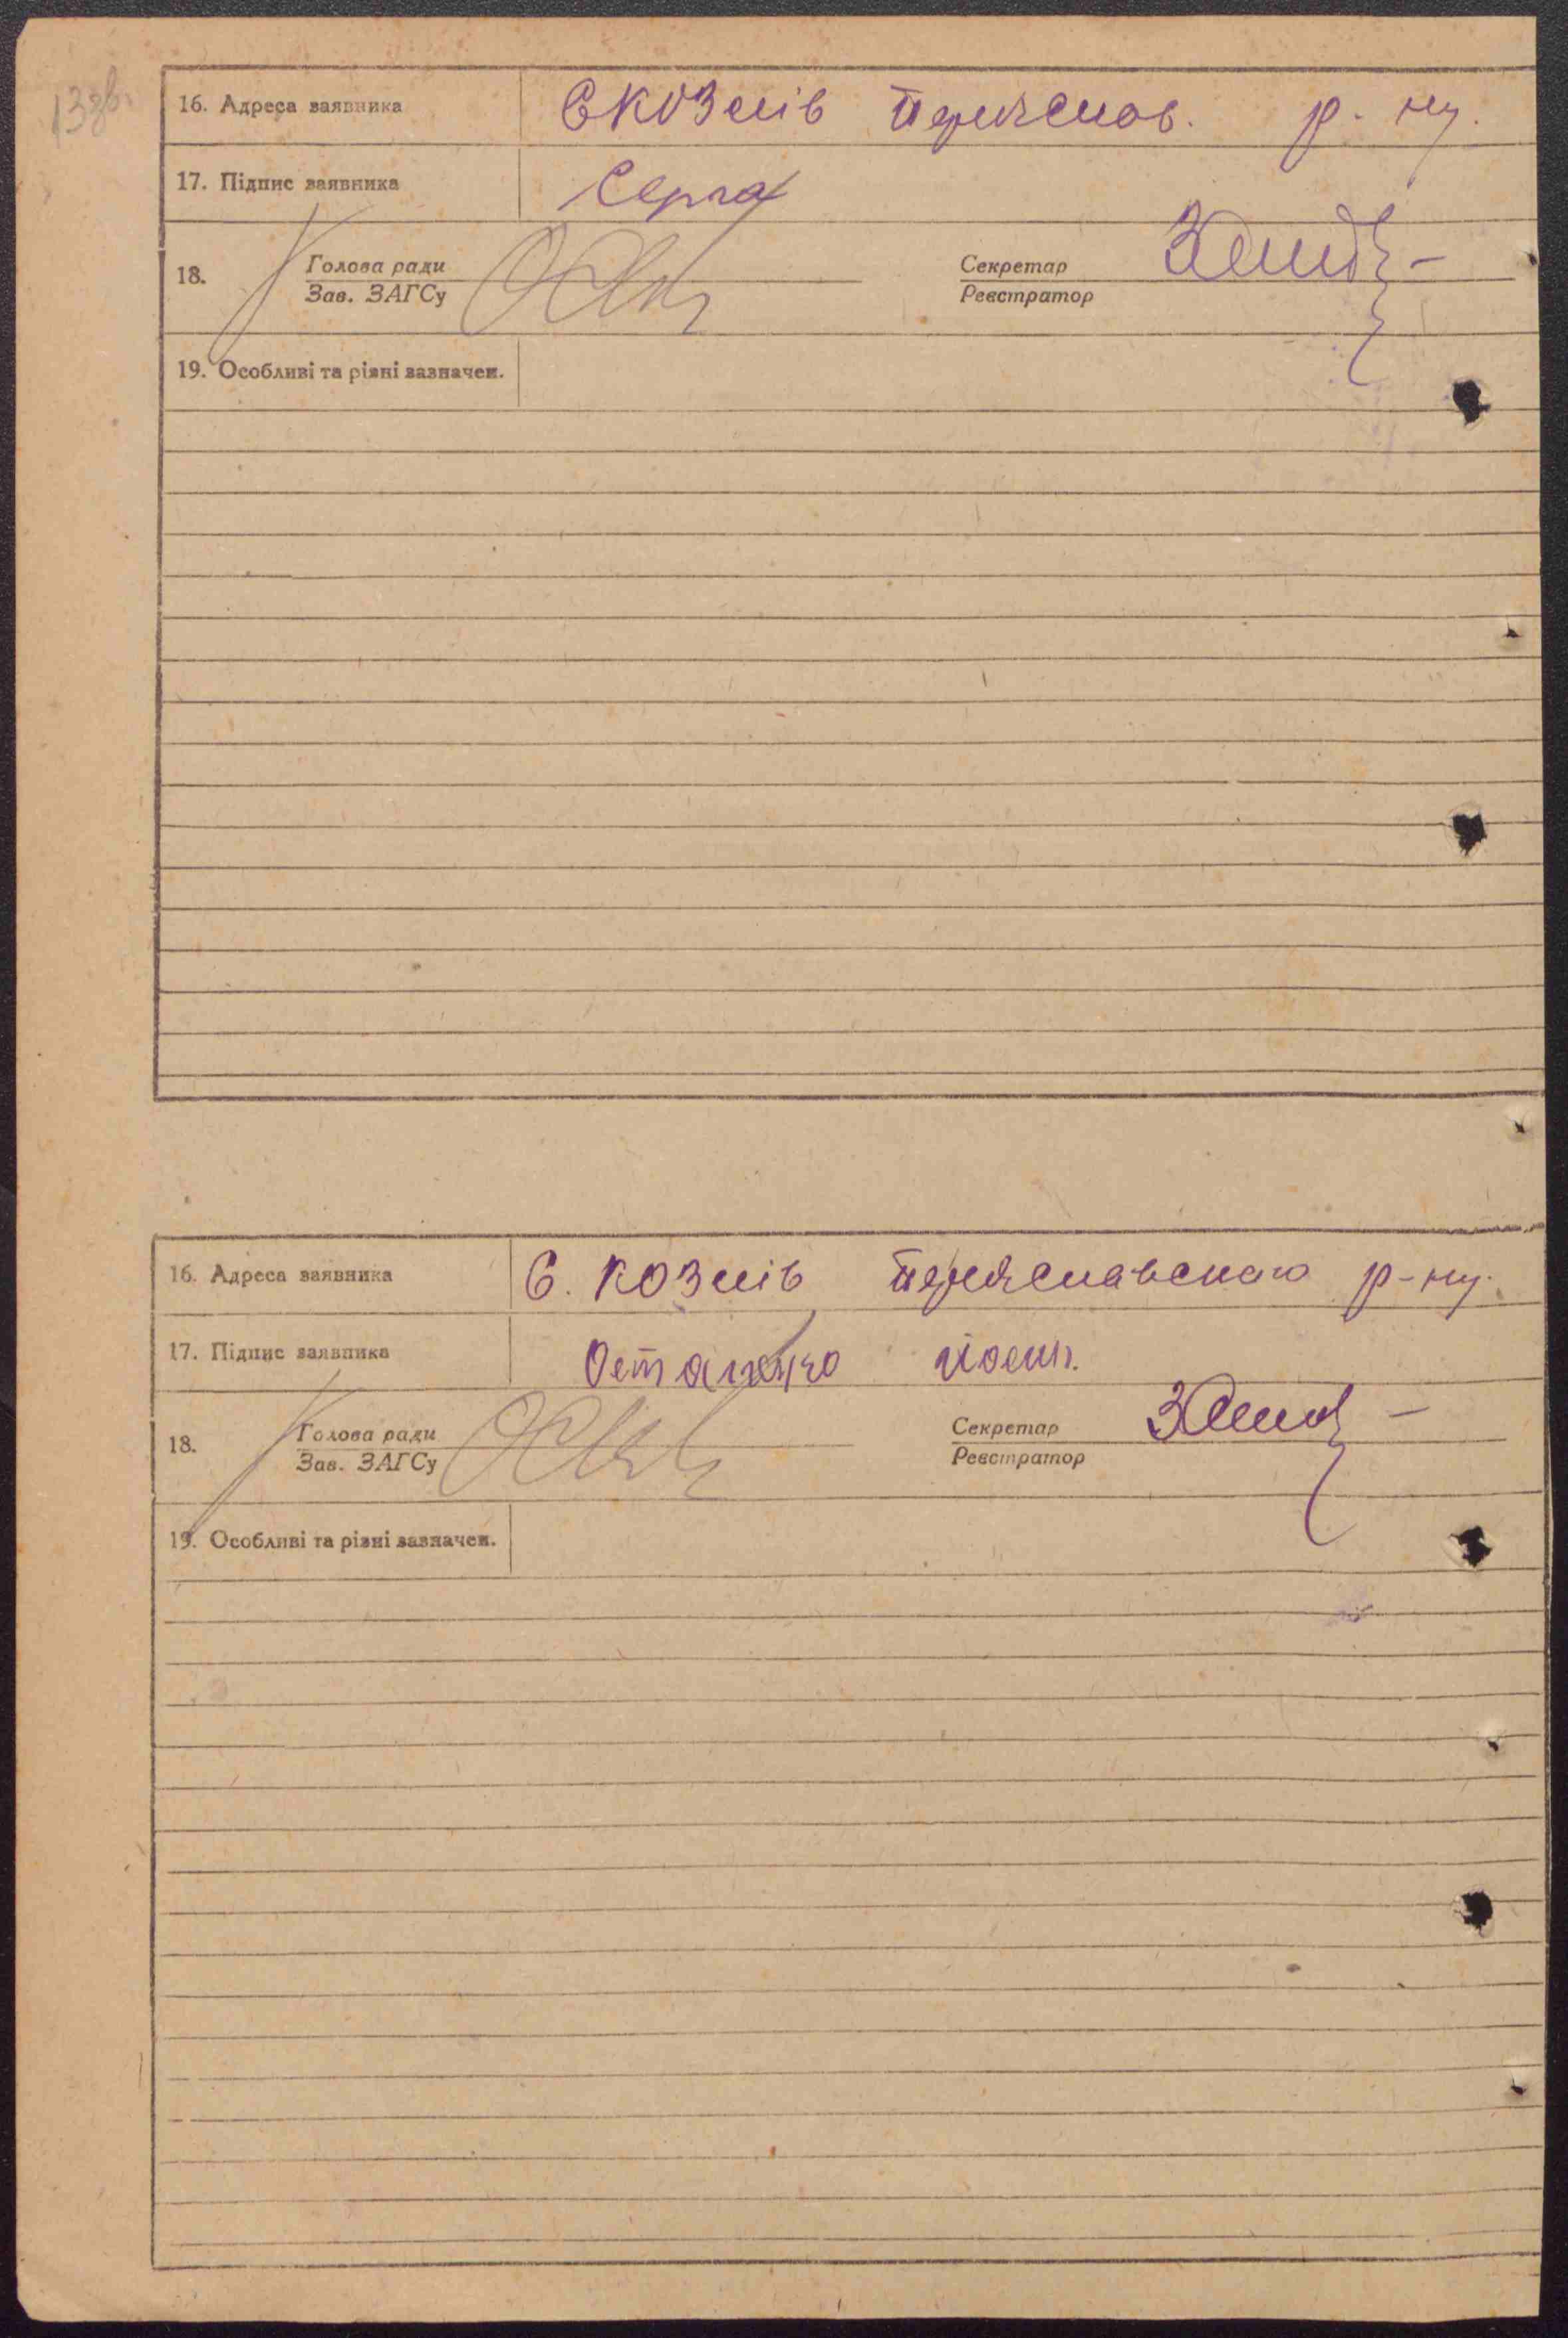 13зв.
16. Адреса заявника С Козлів Переяслов. р-ну.
17. Підпис заявника Серга
18. Голова ради Секретар
Зав. ЗАГСу Реєстратор
19. Особливі та різні зазначен.
16. Адреса заявника С. Козлів Переяславського р-ну.
17. Підпис заявника Остапенко
18. Голова ради Секретар
Зав. ЗАГСу Реєстратор
19. Особливі та різні зазначен.